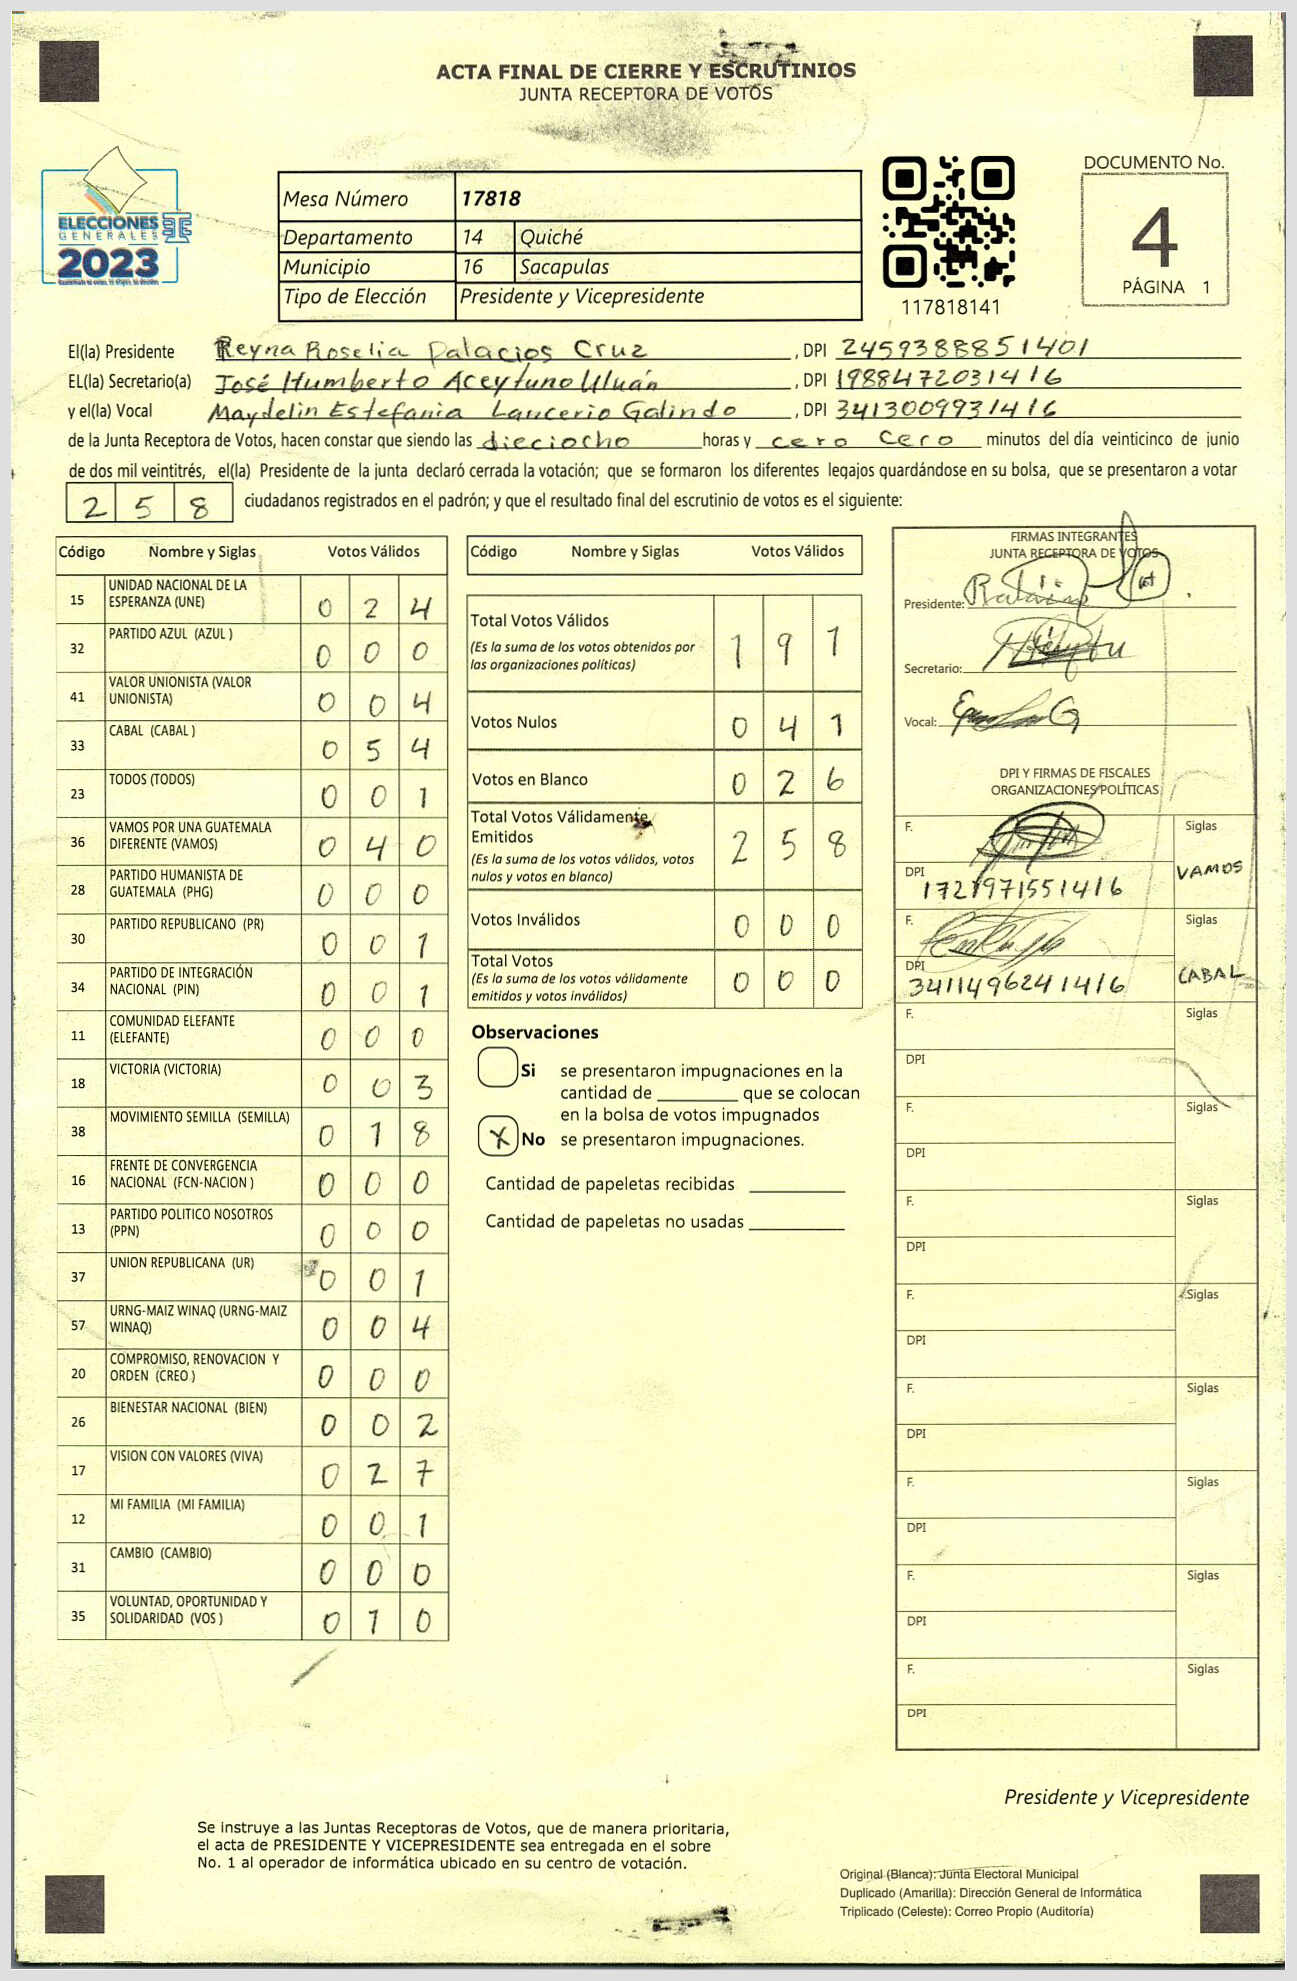 ACTA FINAL DE CIERRE Y ESCRUTINIOS
JUNTA RECEPTORA DE VOTOS
ELECCIONES
GENERALES
2023
Mesa Número 17818
Departamento 14 Quiché
Municipio 16 Sacapulas
Tipo de Elección Presidente y Vicepresidente
117818141
DOCUMENTO No.
4
PÁGINA 1
El(la) Presidente Reyna Roselia Palacios Cruz, DPI 2459388851401
EL(la) Secretario(a) José Humberto Aceytuno Uluán, DPI 1988472031416
y el(la) Vocal Maydelin Estefania Lancerio Galindo, DPI 3413009931416
de la Junta Receptora de Votos, hacen constar que siendo las dieciocho horas y cero cero minutos del día veinticinco de junio
de dos mil veintitrés, el(la) Presidente de la junta declaró cerrada la votación; que se formaron los diferentes legajos quardándose en su bolsa, que se presentaron a votar
258 ciudadanos registrados en el padrón; y que el resultado final del escrutinio de votos es el siguiente:
Código Nombre y Siglas Votos Válidos
15 UNIDAD NACIONAL DE LA
ESPERANZA (UNE) 0 2 4
32 PARTIDO AZUL (AZUL ) 0 0 0
41 VALOR UNIONISTA (VALOR
UNIONISTA) 0 0 4
33 CABAL (CABAL ) 0 5 4
23 TODOS (TODOS) 0 0 1
36 VAMOS POR UNA GUATEMALA
DIFERENTE (VAMOS) 0 4 0
28 PARTIDO HUMANISTA DE
GUATEMALA (PHG) 0 0 0
30 PARTIDO REPUBLICANO (PR) 0 0 1
34 PARTIDO DE INTEGRACIÓN
NACIONAL (PIN) 0 0 1
11 COMUNIDAD ELEFANTE
(ELEFANTE) 0 0 0
18 VICTORIA (VICTORIA) 0 0 3
38 MOVIMIENTO SEMILLA (SEMILLA) 0 1 8
16 FRENTE DE CONVERGENCIA
NACIONAL (FCN-NACION ) 0 0 0
13 PARTIDO POLITICO NOSOTROS
(PPN) 0 0 0
37 UNION REPUBLICANA (UR) 0 0 1
57 URNG-MAIZ WINAQ (URNG-MAIZ
WINAQ) 0 0 4
20 COMPROMISO, RENOVACION Y
ORDEN (CREO ) 0 0 0
26 BIENESTAR NACIONAL (BIEN) 0 0 2
17 VISION CON VALORES (VIVA) 0 2 7
12 MI FAMILIA (MI FAMILIA) 0 0 1
31 CAMBIO (CAMBIO) 0 0 0
35 VOLUNTAD, OPORTUNIDAD Y
SOLIDARIDAD (VOS ) 0 1 0
Código Nombre y Siglas Votos Válidos
Total Votos Válidos 1 9 1
(Es la suma de los votos obtenidos por
las organizaciones políticas)
Votos Nulos 0 4 1
Votos en Blanco 0 2 6
Total Votos Válidamente
Emitidos 2 5 8
(Es la suma de los votos válidos, votos
nulos y votos en blanco)
Votos Inválidos 0 0 0
Total Votos 0 0 0
(Es la suma de los votos válidamente
emitidos y votos inválidos)
Observaciones
Si se presentaron impugnaciones en la
cantidad de ________ que se colocan
en la bolsa de votos impugnados
X No se presentaron impugnaciones.
Cantidad de papeletas recibidas
Cantidad de papeletas no usadas
FIRMAS INTEGRANTES
JUNTA RECEPTORA DE VOTOS
Presidente:
Secretario:
Vocal:
DPI Y FIRMAS DE FISCALES
ORGANIZACIONES POLÍTICAS
F. Siglas
VAMOS
DPI 1721971551416
F. Siglas
DPI 3411496241416 CABAL
F. Siglas
DPI
F. Siglas
DPI
F. Siglas
DPI
F. Siglas
DPI
F. Siglas
DPI
F. Siglas
DPI
F. Siglas
DPI
F. Siglas
DPI
Presidente y Vicepresidente
Se instruye a las Juntas Receptoras de Votos, que de manera prioritaria,
el acta de PRESIDENTE Y VICEPRESIDENTE sea entregada en el sobre
No. 1 al operador de informática ubicado en su centro de votación.
Original (Blanca): Junta Electoral Municipal
Duplicado (Amarilla): Dirección General de Informática
Triplicado (Celeste): Correo Propio (Auditoría)